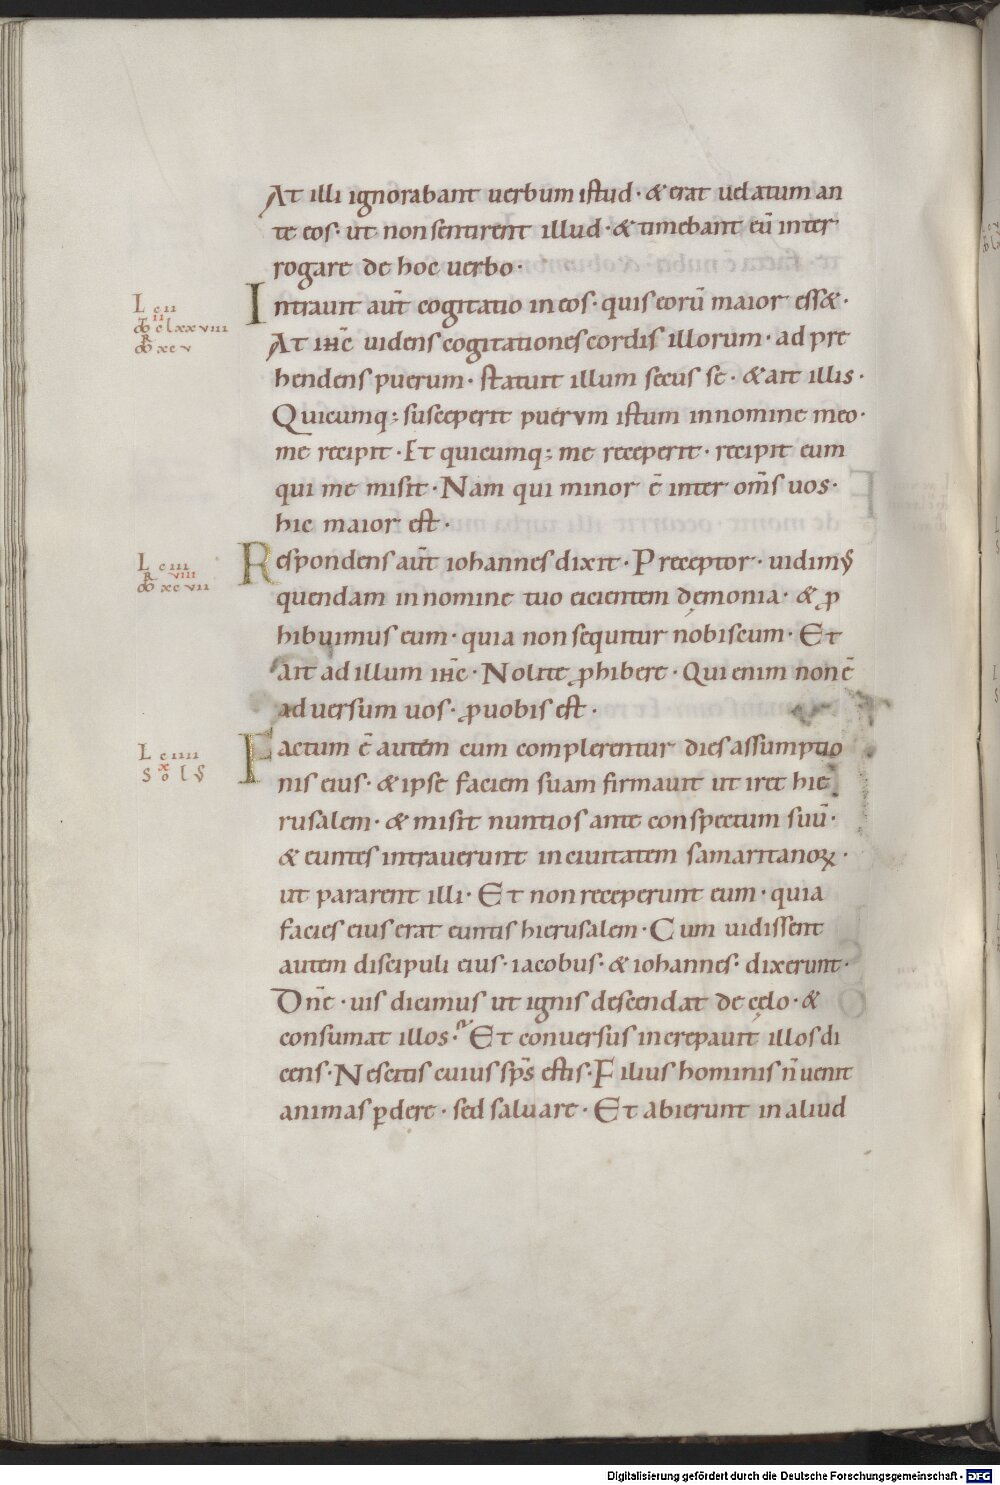 At illi ignorabant uerbum istud · & erat uelatum an
te eos · ut non sentirent illud · & timebant eū inter
rogare de hoc uerbo ·
L cii
Intrauit aūt cogitatio in eos · quis eorū maior ess& ·
ii
M clxxviii
R
M xcv
At ih̄c uidens cogitationes cordis illorum · adpre
hendens puerum · statuit illum secus se · & ait illis ·
Quicumq; susceperit puerum istum in nomine meo ·
me recipit · Et quicumq; me receperit · recipit eum
qui me misit · Nam qui minor ē inter om̄s uos ·
hic maior est ·
L ciii
Respondens aūt iohannes dixit · Preceptor · uidimꝰ
R viii
M xcvii
quendam in nomine tuo eicientem demonia · & ꝓ
hibuimus eum · quia non sequitur nobiscum · Et
ait ad illum ih̄c · Nolite ꝓhibere · Qui enim non ē
aduersum uos · ꝓ uobis est ·
L ciiii
Factum ē autem cum complerentur dies assumptio
x
S o l ꝰ
nis eius · & ipse faciem suam firmauit ut iret hie
rusalem · & misit nuntios ante conspectum suū ·
& euntes intrauerunt in ciuitatem samaritanoꝝ ·
ut pararent illi · Et non receperunt eum · quia
facies eius erat euntis hierusalem · Cum uidissent
autem discipuli eius · iacobus · & iohannes · dixerunt ·
Dn̄e · uis dicimus ut ignis descendat de cęlo · &
consumat illos · Et conuersus increpauit illos di
cens · Nescitis cuius sp̄s estis · Filius hominis n̄ uenit
animas ꝑdere · sed saluare · Et abierunt in aliud
Digitalisierung gefördert durch die Deutsche Forschungsgemeinschaft - DFG